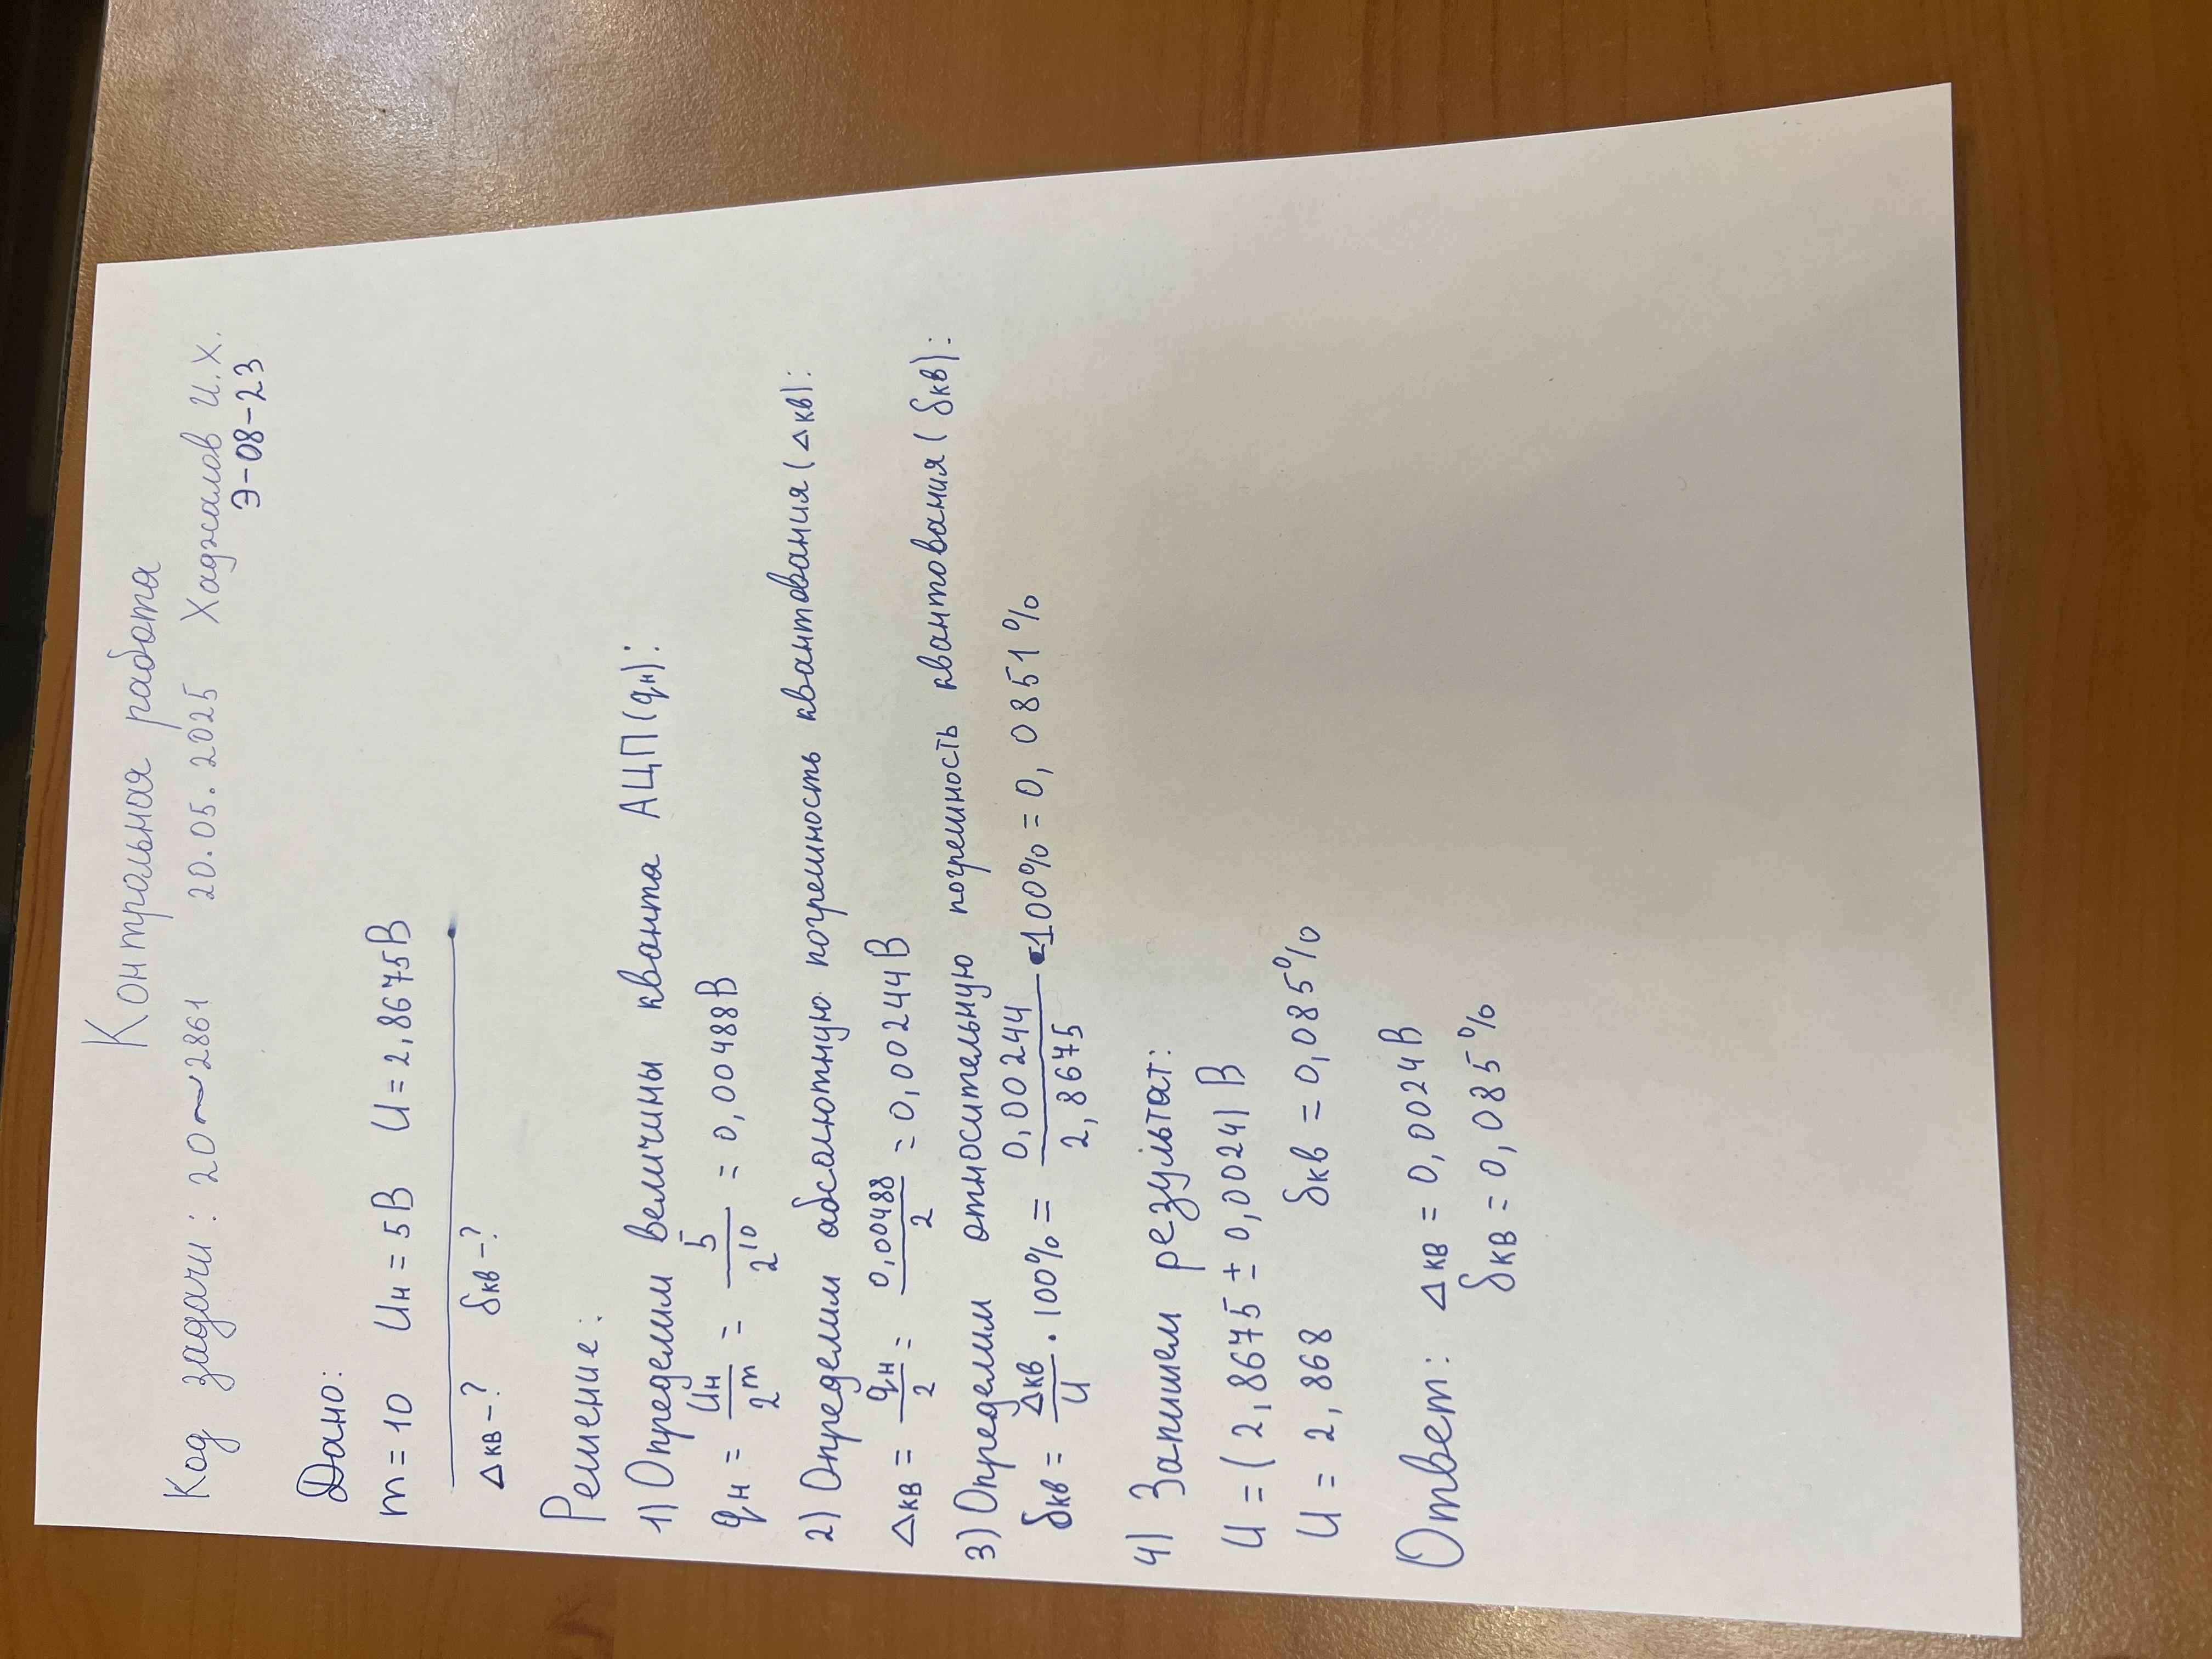 Контрольная работа
Код задачи: 20~2861 20.05.2025 Хаджалов И.Х.
Э-08-23
Дано:
m = 10 Uн = 5В U = 2,8675В
Δкв -? δкв -?
Решение:
1) Определим величины кванта АЦП (qн):
qн = Uн/2^m = 5/2^10 = 0,00488В
2) Определим абсолютную погрешность квантования (Δкв):
Δкв = qн/2 = 0,00488/2 = 0,00244В
3) Определим относительную погрешность квантования (δкв):
δкв = Δкв/U · 100% = 0,00244/2,8675 · 100% = 0,0851%
4) Запишем результат:
U = (2,8675 ± 0,0024) В
U = 2,868 δкв = 0,085%
Ответ: Δкв = 0,0024В
δкв = 0,085%